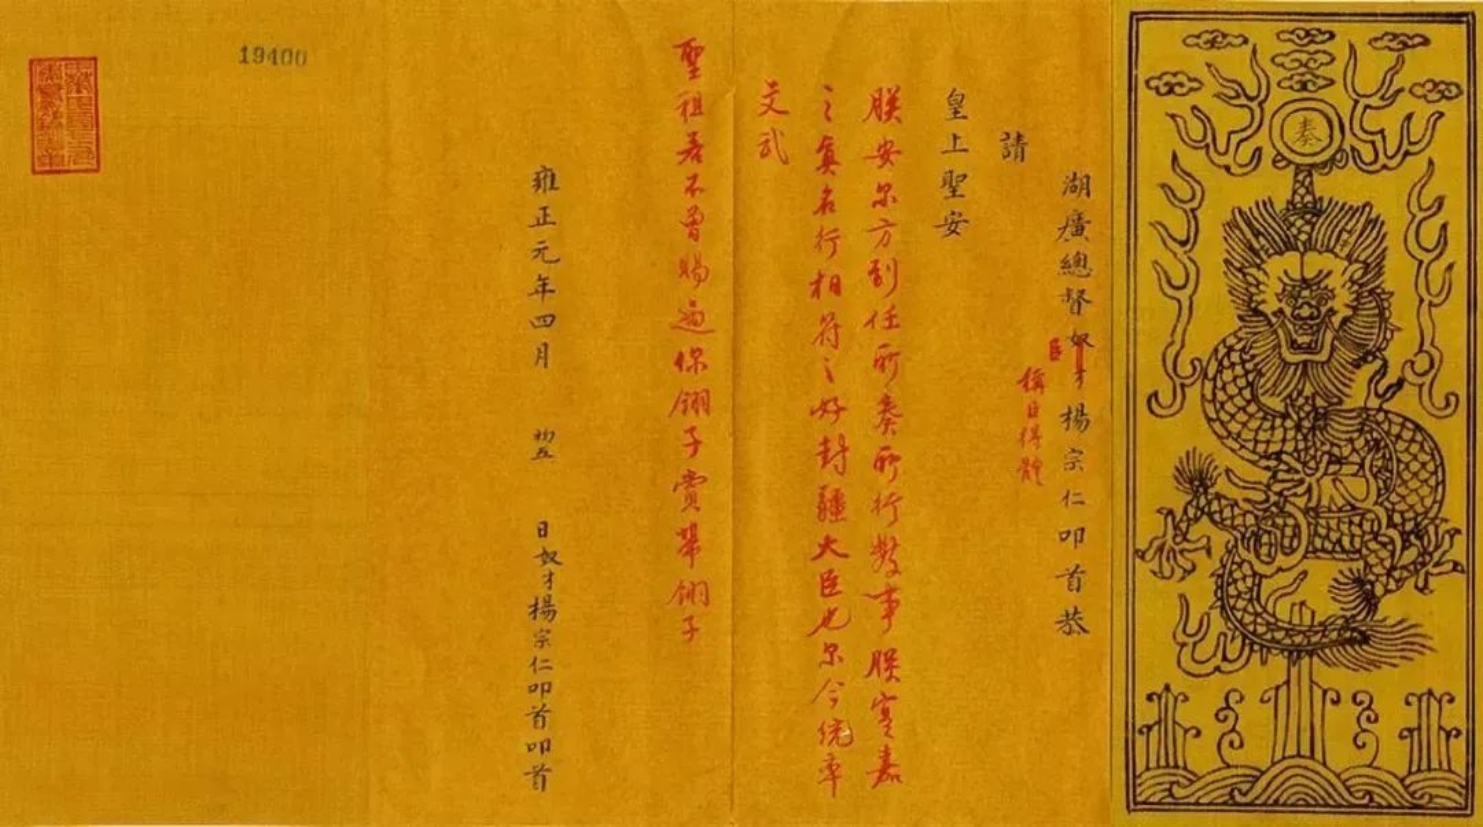 奏
湖廣總督奴才楊宗仁叩首恭
臣
稱臣得體
請
皇上聖安
朕安尔方到任所奏所行數事朕寔嘉
之真名行相符之好封疆大臣也尔今統率
文武
聖祖若不曾賜過你翎子賞帶翎子
雍正元年四月 初五 日奴才楊宗仁叩首叩首
19400